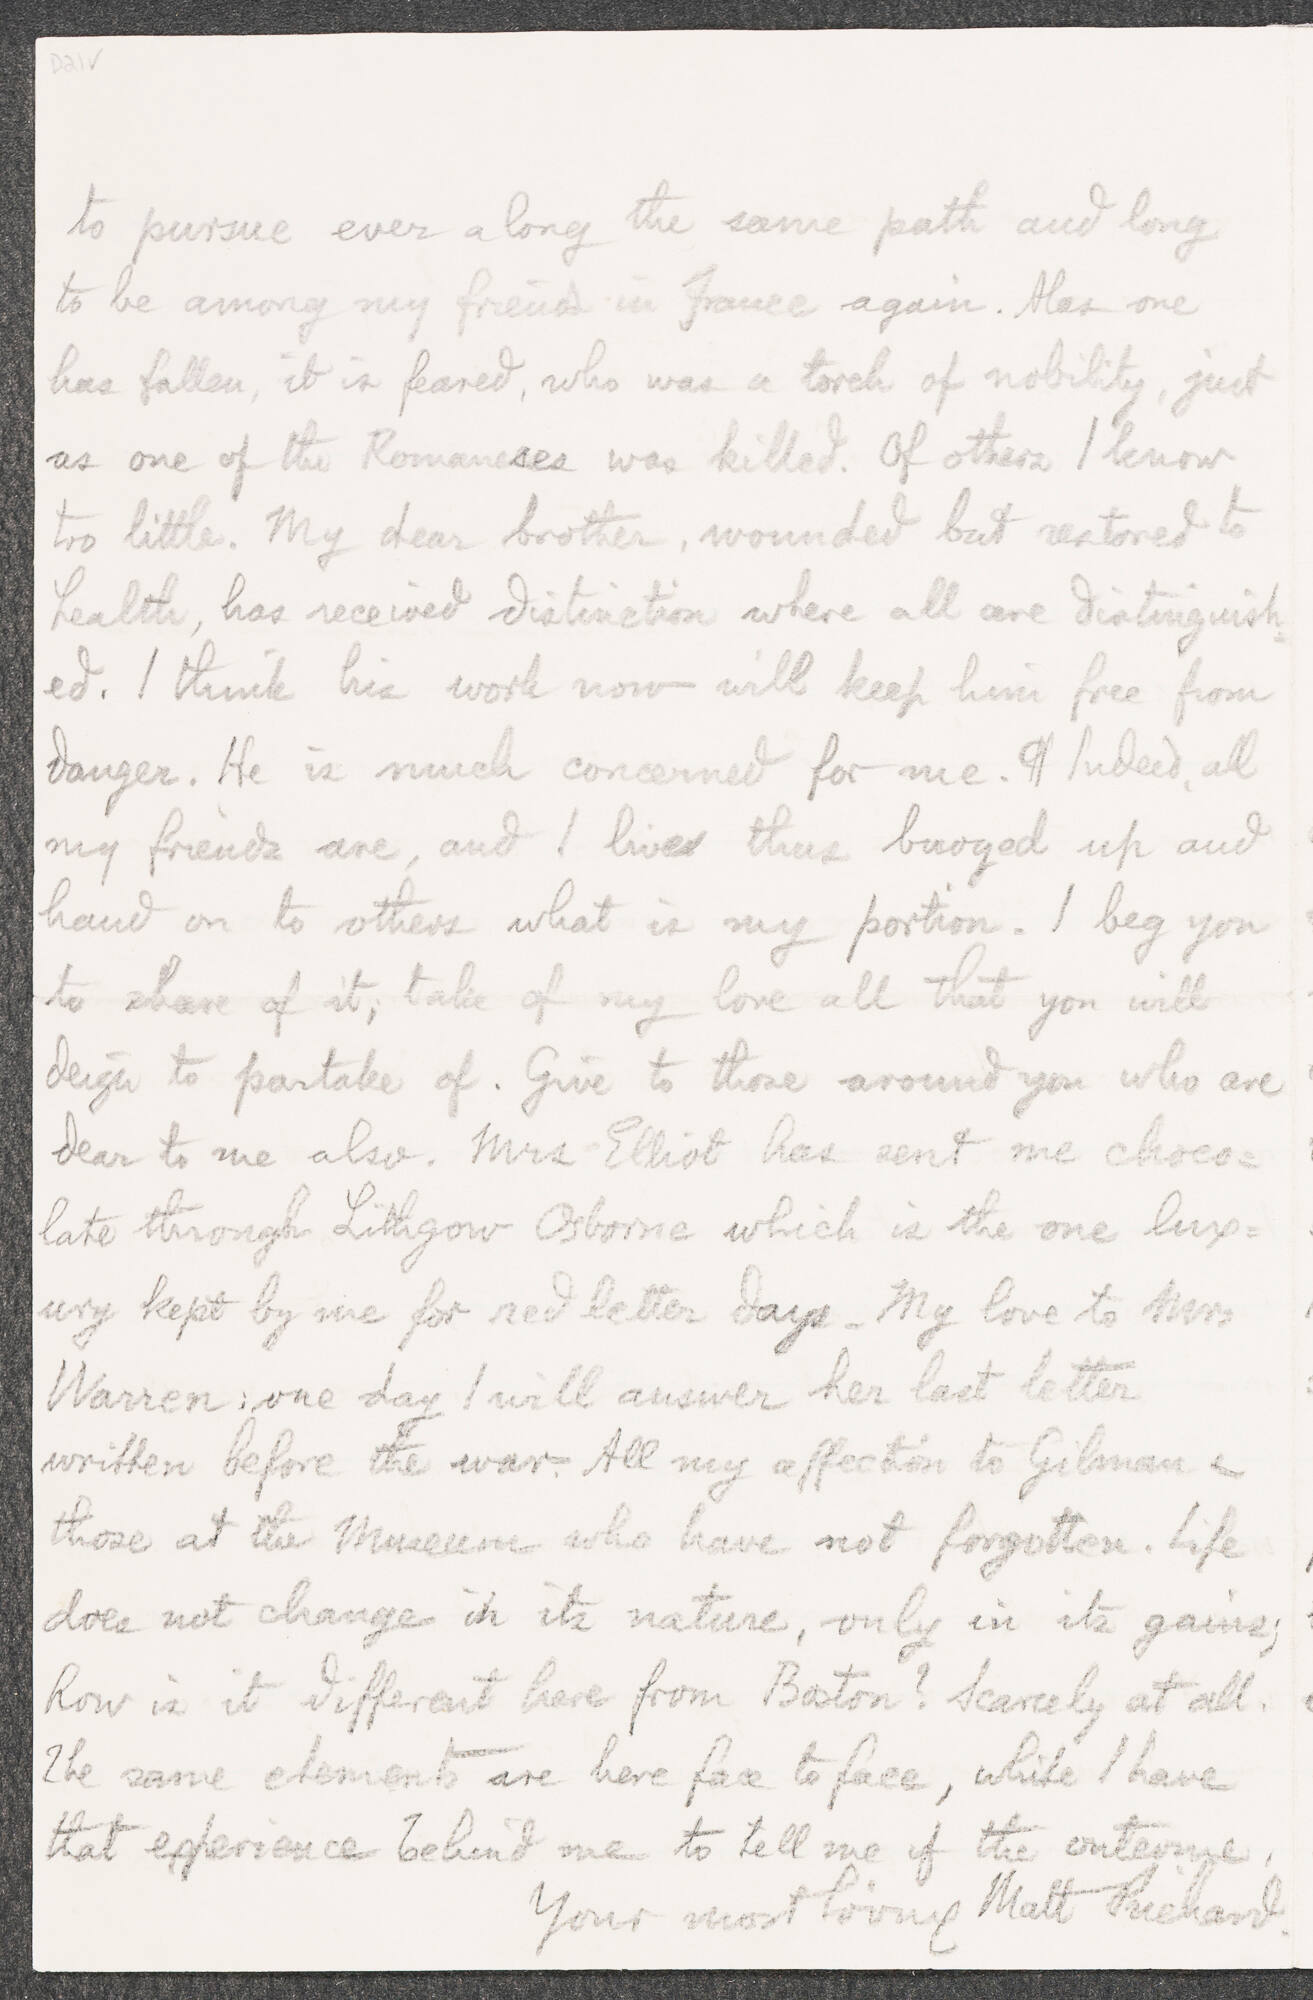 D21V
to pursue ever along the same path and long
to be among my friends in France again. Alas one
has fallen, it is feared, who was a torch of nobility, just
as one of the Romaneses was killed. Of others I know
too little. My dear brother, wounded but restored to
health, has received distinction where all are distinguish-
ed. I think his work now will keep him free from
danger. He is much concerned for me. ¶ Indeed, all
my friends are, and I live thus buoyed up and
hand on to others what is my portion. I beg you
to share of it; take of my love all that you will
deign to partake of. Give to those around you who are
dear to me also. Mrs Elliot has sent me choco=
late through Lithgow Osborne which is the one lux=
ury kept by me for red letter days. My love to Mrs
Warren; one day I will answer her last letter
written before the war. All my affection to Gilman &
those at the Museum who have not forgotten. Life
does not change in its nature, only in its gains;
How is it different here from Boston? Scarcely at all.
The same elements are here face to face, while I have
that experience behind me to tell me of the outcome.
Your most loving Matt Prichard.